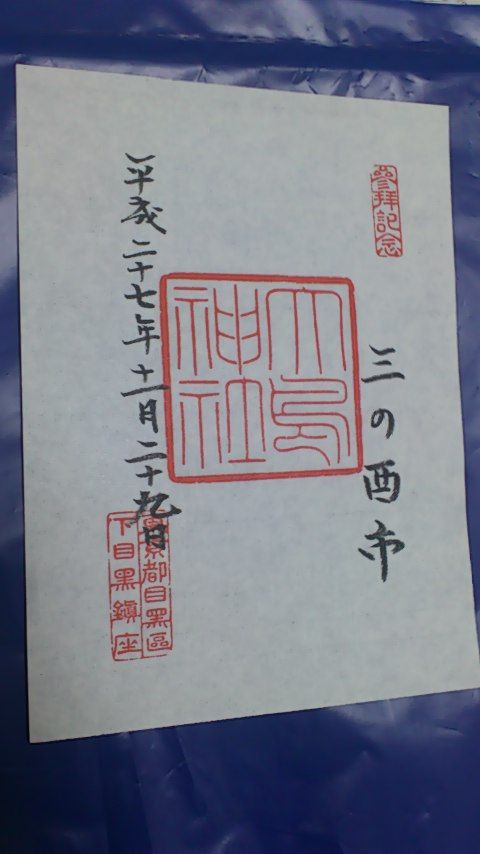 參拜記念
三の酉市
大鳥
神社
平成二十七年十一月二十九日
東京都目黑區
下目黑鎭座